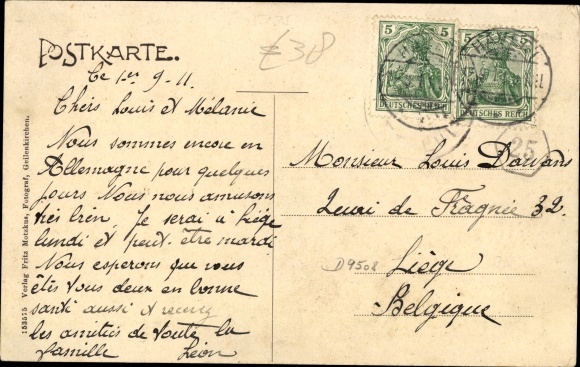 POSTKARTE.
£38
5 5
DEUTSCHES REICH DEUTSCHES REICH
Ce 1er 9-11
Chers Louis et Mélanie
Nous sommes encore en
Allemagne pour quelques
jours Nous nous amusons
très bien. Je serai à Liége
lundi et peut-être mardi
Nous esperons que vous
êtes tous deux en bonne
santé aussi et recevez
les amitiés de toute la
famille Léon
Monsieur Louis Dawans
Quai de Fragnée 32.
Liége
Belgique
D9508
25
153575 Verlag Fritz Motzkus, Fotograf, Geilenkirchen.